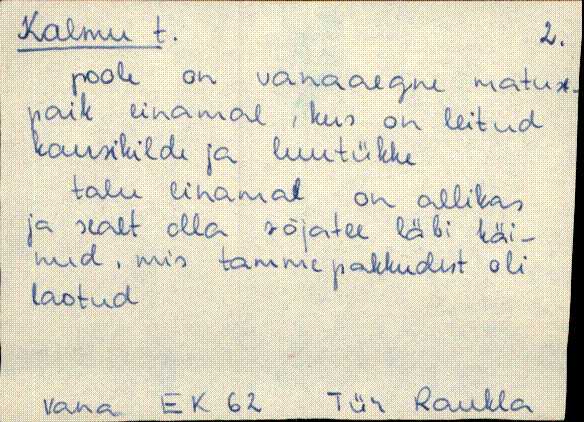 Kalmu t. 2.
poole on vanaaegne matuse-
paik einamal, kus on leitud
kausikilde ja luutükke
talu einamal on allikas
ja sealt olla sõjatee läbi käi-
nud, mis tammepakkudest oli
laotud
vana EK 62 Tür Raukla